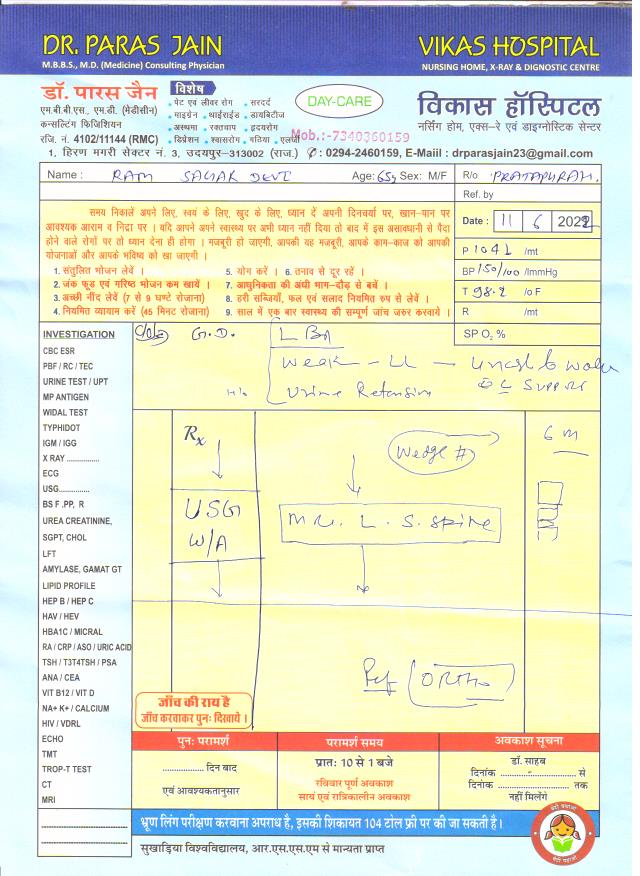 DR. PARAS JAIN
M.B.B.S., M.D. (Medicine) Consulting Physician
VIKAS HOSPITAL
NURSING HOME, X-RAY & DIGNOSTIC CENTRE
डॉ. पारस जैन
एम.बी.बी.एस., एम.डी. (मेडीसीन)
कन्सल्टिंग फिजिशियन
रजि. नं. 4102/11144 (RMC)
विशेष
• पेट एवं लीवर रोग • सरदर्द
• माइग्रेन • थाईराईड • डायबिटीज
• अस्थमा • रक्तचाप • हृदयरोग
• डिप्रेशन • श्वासरोग • गठिया • एलर्जी
DAY-CARE
Mob.:-7340360159
विकास हॉस्पिटल
नर्सिंग होम, एक्स-रे एवं डाइग्नोस्टिक सेन्टर
1, हिरण मगरी सेक्टर नं. 3, उदयपुर-313002 (राज.) ✆ : 0294-2460159, E-Maiil : drparasjain23@gmail.com
Name : RAM SAGAR DEVI Age: 65y Sex: M/F R/o PRATAPURAM.
Ref. by
Date : 11 6 2022
P 104 /mt
BP 150/100 /mmHg
T 98.2 /o F
R /mt
SP O₂ %
समय निकालें अपने लिए, स्वयं के लिए, खुद के लिए, ध्यान दें अपनी दिनचर्या पर, खान-पान पर
आवश्यक आराम व निद्रा पर । यदि आपने अपने स्वास्थ्य पर अभी ध्यान नहीं दिया तो बाद में इस असावधानी से पैदा
होने वाले रोगों पर तो ध्यान देना ही होगा । मजबूरी हो जाएगी, आपकी यह मजबूरी, आपके काम-काज को आपकी
योजनाओं और आपके भविष्य को खा जाएगी ।
1. संतुलित भोजन लेवें । 5. योग करें । 6. तनाव से दूर रहें ।
2. जंक फूड एवं गरिष्ठ भोजन कम खायें । 7. आधुनिकता की अंधी भाग-दौड़ से बचें ।
3. अच्छी नींद लेवें (7 से 9 घण्टे रोजाना) 8. हरी सब्जियाँ, फल एवं सलाद नियमित रुप से लेवें ।
4. नियमित व्यायाम करें (45 मिनट रोजाना) 9. साल में एक बार स्वास्थ्य की सम्पूर्ण जांच जरुर करवाये ।
INVESTIGATION
CBC ESR
PBF / RC / TEC
URINE TEST / UPT
MP ANTIGEN
WIDAL TEST
TYPHIDOT
IGM / IGG
X RAY ................
ECG
USG...............
BS F .PP, R
UREA CREATININE,
SGPT, CHOL
LFT
AMYLASE, GAMAT GT
LIPID PROFILE
HEP B / HEP C
HAV / HEV
HBA1C / MICRAL
RA / CRP / ASO / URIC ACID
TSH / T3T4TSH / PSA
ANA / CEA
VIT B12 / VIT D
NA+ K+ / CALCIUM
HIV / VDRL
ECHO
TMT
TROP-T TEST
CT
MRI
G.D. LBA
weak - LL - unable to walk
c support
H/o Urine Retension
Rx
Wedge #
6 m
USG
W/A
MRI. L. S. spine
Ref ORTHO
जाँच की राय है
जाँच करवाकर पुनः दिखाये ।
पुनः परामर्श
................ दिन बाद
एवं आवश्यकतानुसार
परामर्श समय
प्रातः 10 से 1 बजे
रविवार पूर्ण अवकाश
सायं एवं रात्रिकालीन अवकाश
अवकाश सूचना
डॉ. साहब
दिनांक ..................... से
दिनांक ..................... तक
नहीं मिलेंगे
भ्रूण लिंग परीक्षण करवाना अपराध है, इसकी शिकायत 104 टोल फ्री पर की जा सकती है।
सुखाड़िया विश्वविद्यालय, आर.एस.एस.एम से मान्यता प्राप्त
बेटी बचाओ
बेटी पढ़ाओ